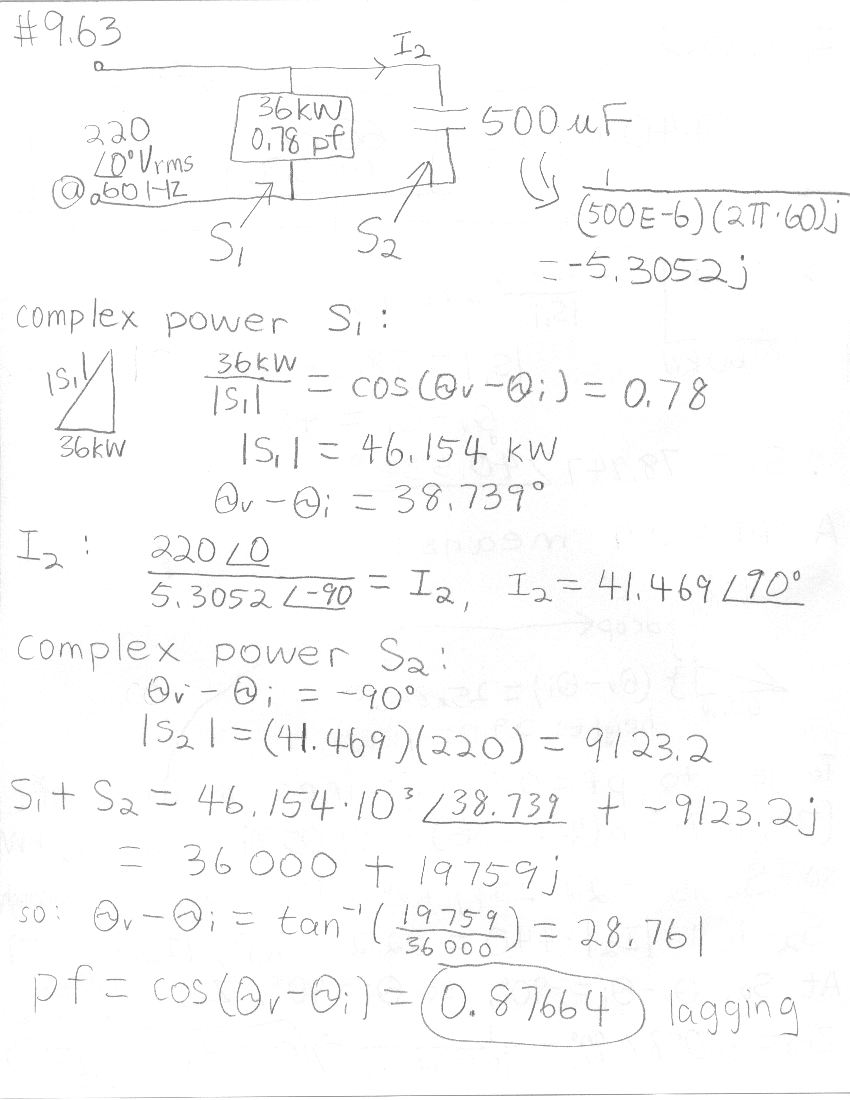 #9.63
I₂
36kW
0.78 pf
500 uF
220
∠0° Vrms
@ 60 Hz
S₁
S₂
1
(500E-6)(2π·60)j
= -5.3052j
complex power S₁:
|S₁|
36kW
36kW / |S₁| = cos(θv-θi) = 0.78
|S₁| = 46.154 kW
θv-θi = 38.739°
I₂: 220∠0 / 5.3052∠-90 = I₂, I₂ = 41.469∠90°
complex power S₂:
θv-θi = -90°
|S₂| = (41.469)(220) = 9123.2
S₁ + S₂ = 46.154·10³∠38.739 + -9123.2j
= 36000 + 19759j
so: θv-θi = tan⁻¹(19759/36000) = 28.761
pf = cos(θv-θi) = 0.87664 lagging